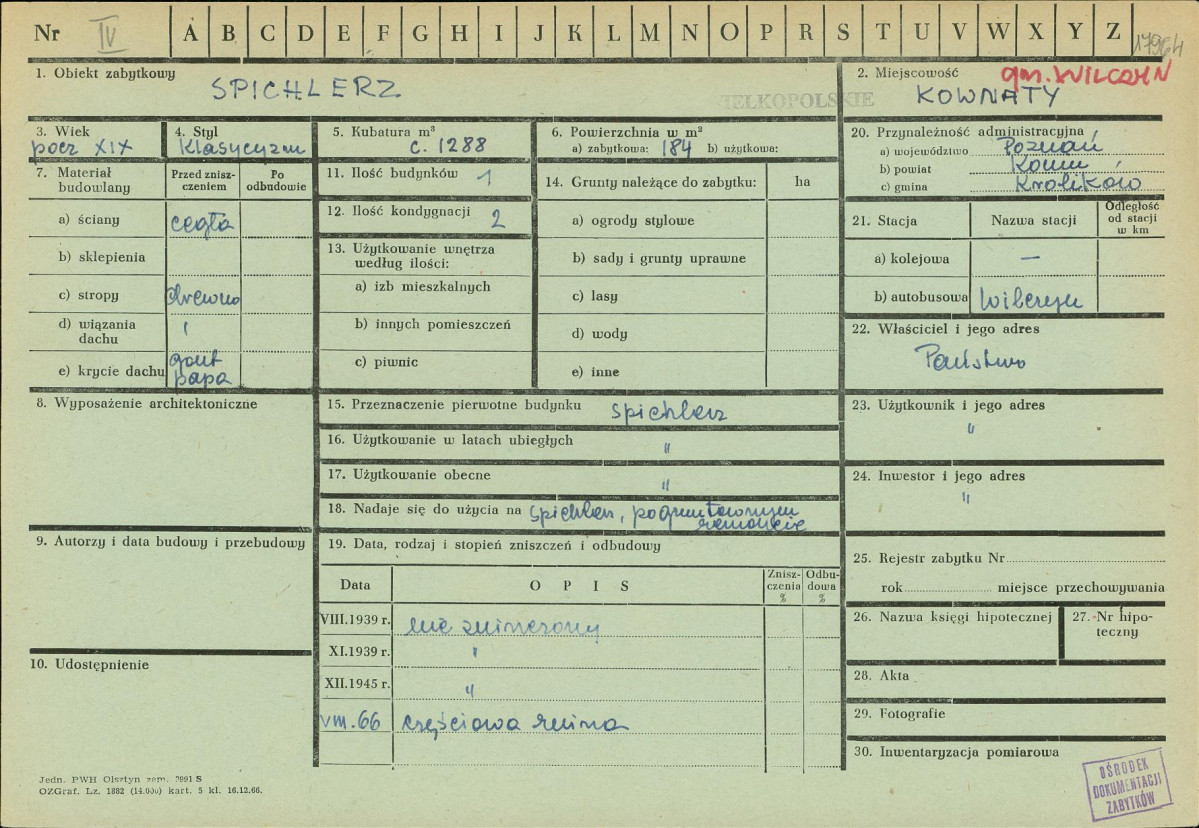 Nr IV A B C D E F G H I J K L M N O P R S T U V W X Y Z
1. Obiekt zabytkowy
SPICHLERZ
2. Miejscowość gm. WILCZYN
WIELKOPOLSKIE
KOWNATY
3. Wiek
pocz XIX
4. Styl
klasycyzm
5. Kubatura m³
c. 1288
6. Powierzchnia w m²
a) zabytkowa: 184 b) użytkowa:
7. Materiał budowlany
Przed zniszczeniem
Po odbudowie
a) ściany cegła
b) sklepienia
c) stropy drewno
d) wiązania dachu "
e) krycie dachu gont
papa
8. Wyposażenie architektoniczne
9. Autorzy i data budowy i przebudowy
10. Udostępnienie
11. Ilość budynków 1
12. Ilość kondygnacji 2
13. Użytkowanie wnętrza
według ilości:
a) izb mieszkalnych
b) innych pomieszczeń
c) piwnic
14. Grunty należące do zabytku: ha
a) ogrody stylowe
b) sady i grunty uprawne
c) lasy
d) wody
e) inne
15. Przeznaczenie pierwotne budynku spichlerz
16. Użytkowanie w latach ubiegłych "
17. Użytkowanie obecne "
18. Nadaje się do użycia na spichlerz, po gruntownym
remoncie
19. Data, rodzaj i stopień zniszczeń i odbudowy
Data
O P I S
Zniszczenia %
Odbudowa %
VIII.1939 r. nie zniszczony
XI.1939 r. "
XII.1945 r. "
VIII.66 częściowa ruina
20. Przynależność administracyjna
a) województwo Poznań
b) powiat Konin
c) gmina Królików
21. Stacja
Nazwa stacji
Odległość od stacji w km
a) kolejowa —
b) autobusowa Wilczyn
22. Właściciel i jego adres
Państwo
23. Użytkownik i jego adres
"
24. Inwestor i jego adres
"
25. Rejestr zabytku Nr
rok miejsce przechowywania
26. Nazwa księgi hipotecznej
27. Nr hipoteczny
28. Akta
29. Fotografie
30. Inwentaryzacja pomiarowa
Jedn. PWH Olsztyn zam. 2991 S
OZGraf. Lz. 1882 (14.000) kart. 5 kl. 16.12.66.
OŚRODEK
DOKUMENTACJI
ZABYTKÓW